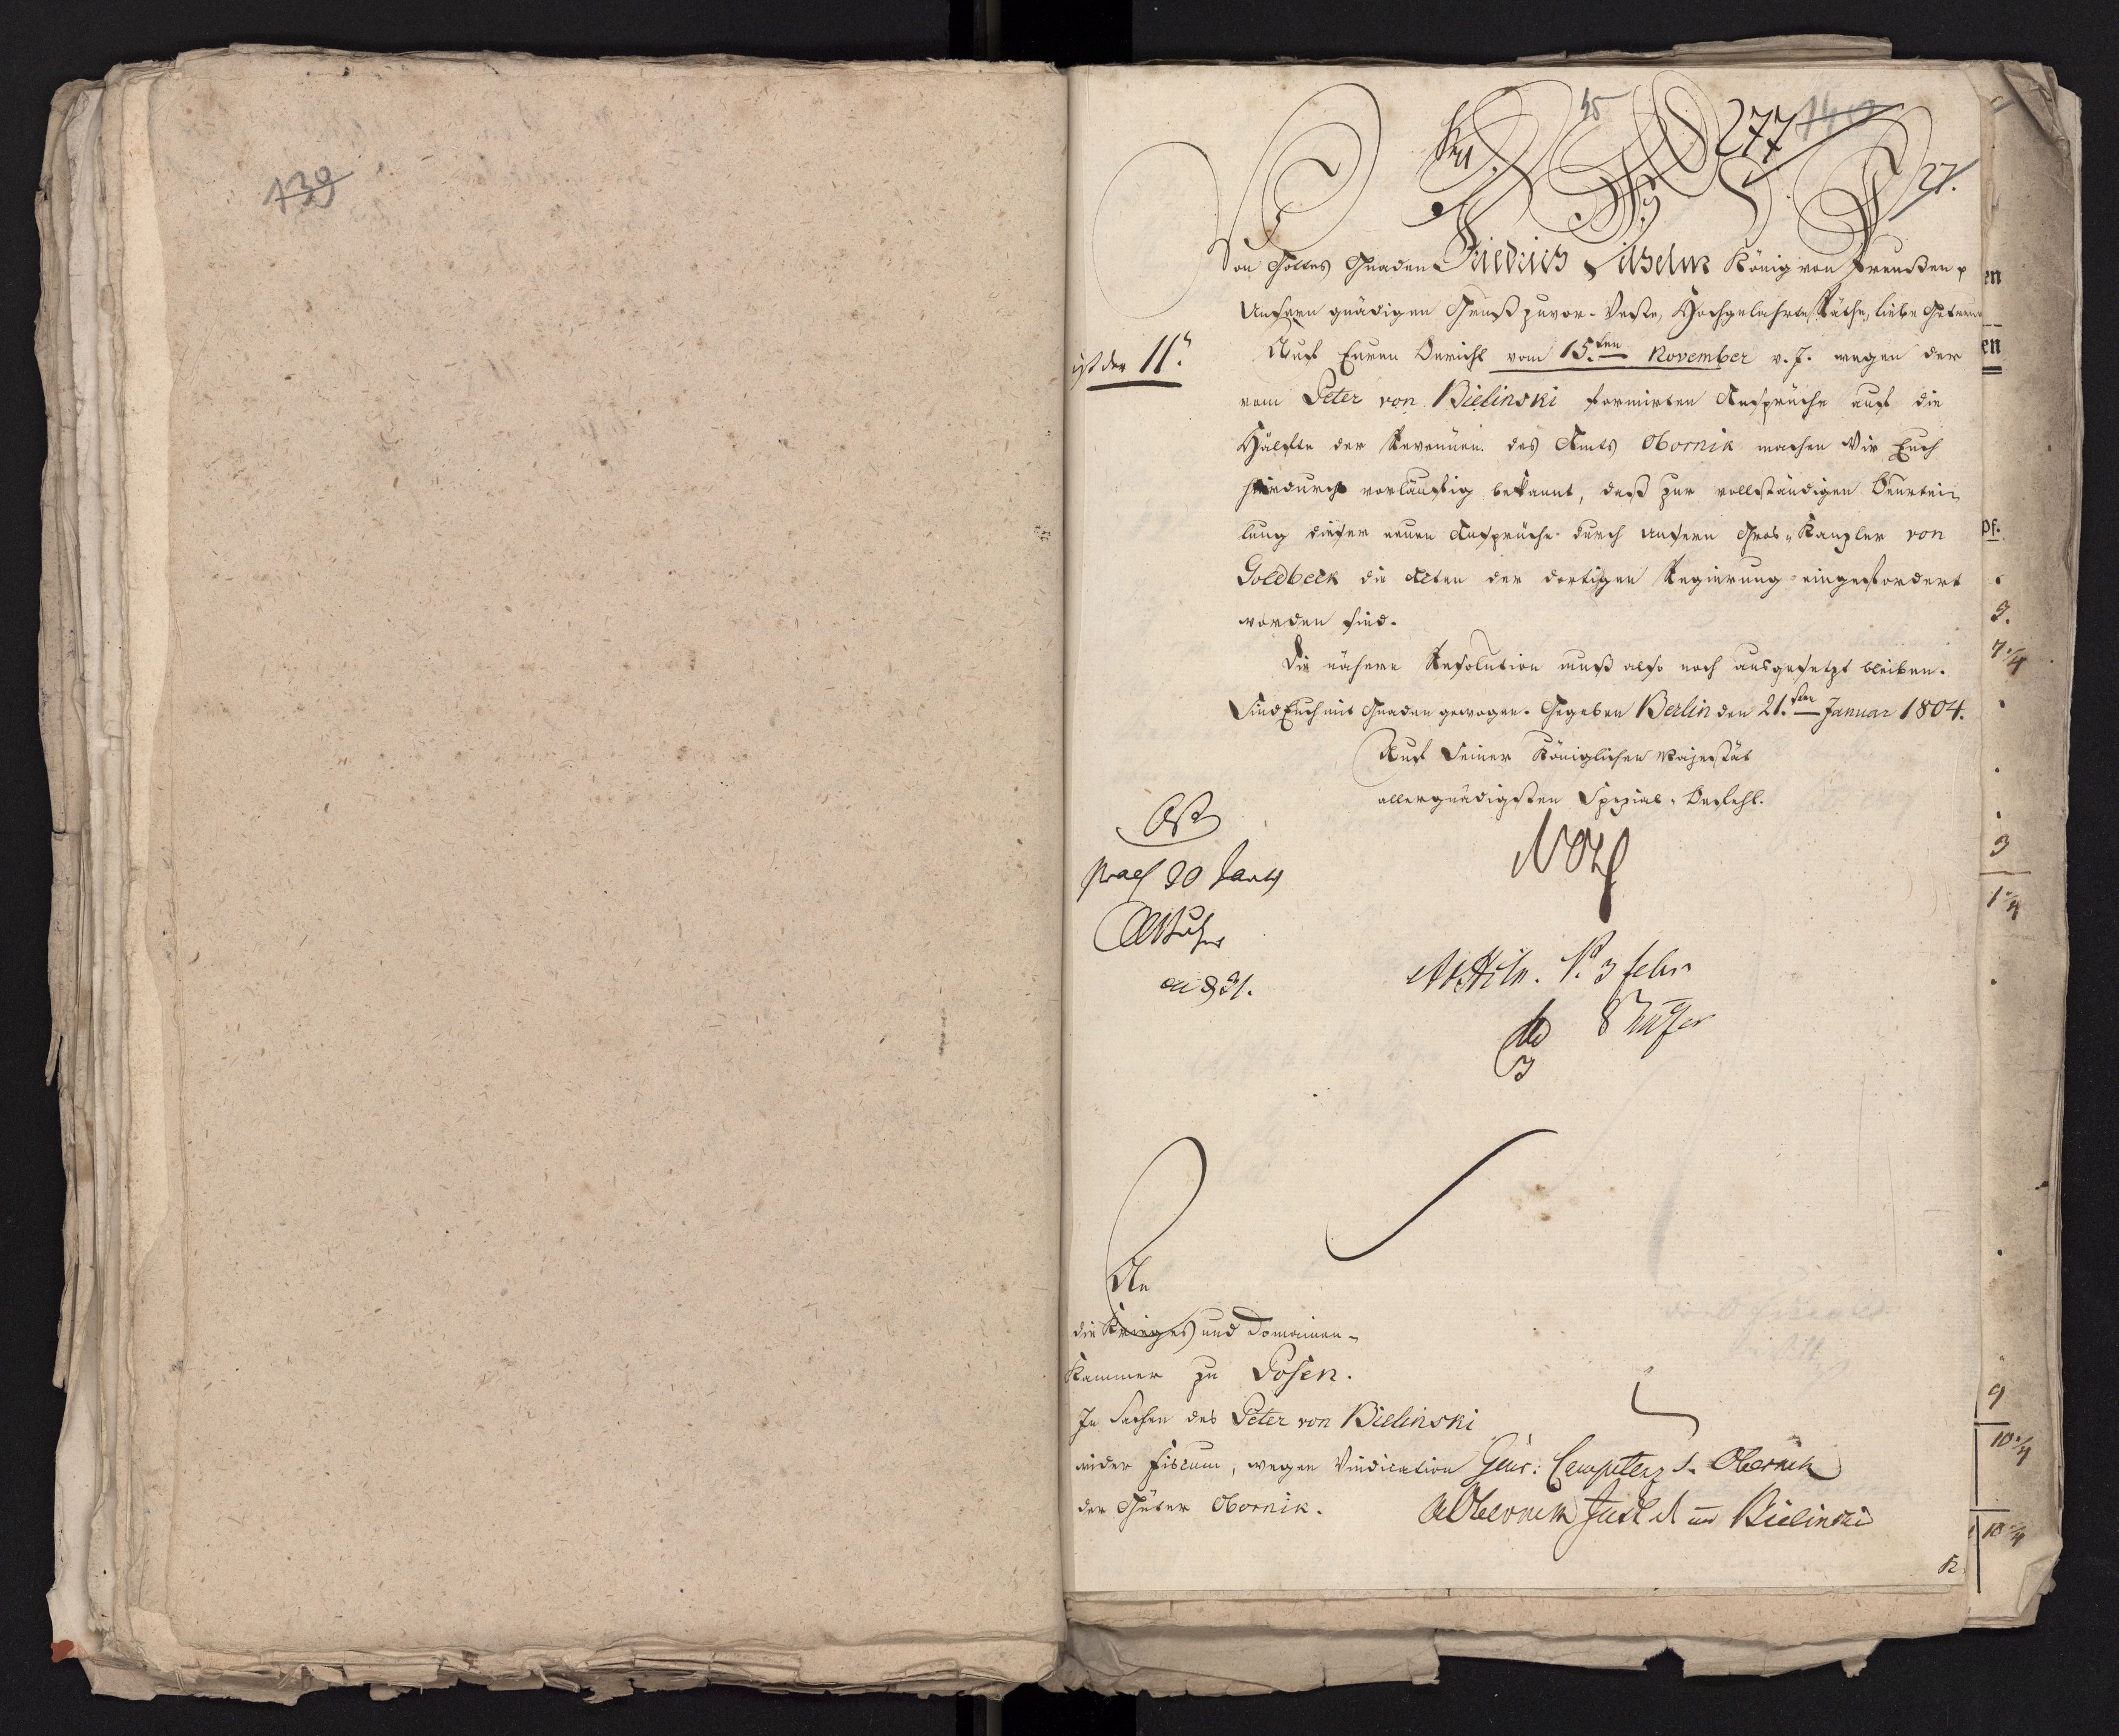 139
45
277
140
27.
Von Gottes Gnaden Friedrich Wilhelm König von Preußen p
Unsern gnädigen Gruß zuvor. Veste, Hochgelahrte Räthe, liebe Getreue
ist der 11t.
Auf Euren Bericht vom 15.ten November v. J. wegen der
vom Peter von Bielinski formirten Ansprüche auf die
Hälfte der Revenüen des Amts Obornik machen Wir Euch
hierdurch vorläufig bekannt, daß zur vollständigen Beurtei-
lung dieser neuen Ansprüche durch unsern Gros-Kanzler von
Goldbeck die Akten der dortigen Regierung eingefordert
worden sind.
Die nähere Resolution muß also noch ausgesetzt bleiben.
Sind Euch mit Gnaden gewogen. Gegeben Berlin den 21.sten Januar 1804.
Auf Seiner Königlichen Majestät
allergnädigsten Spezial-Befehl.
Voß
praes 30 Jan 4
3 febr
An
die Krieges und Domainen-
Kammer zu Posen.
In Sachen des Peter von Bielinski
wider Fiscum, wegen Vindication
der Güter Obornik.
Obornik
Bielinski
en
en
pf.
3.
7 1/4
3
9
10 1/4